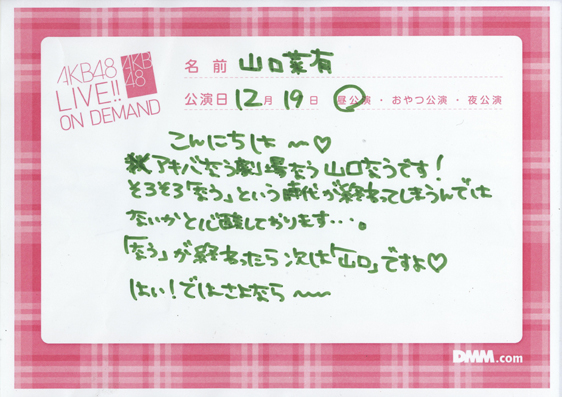 AKB48
LIVE!!
ON DEMAND
AKB
48
名前 山口菜有
公演日 12月 19日 昼公演・おやつ公演・夜公演
こんにちは〜♡
アキバなう劇場なう山口なうです！
そろそろ「なう」という時代が終わってしまうんでは
ないかと心配しております・・・。
「なう」が終わったら次は「山口」ですよ♡
はい！ではさよなら〜〜
DMM.com